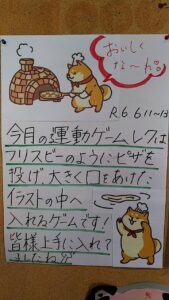 おいしく
な～れ。
R.6.6.11～13
今月の運動ゲームレクは
フリスビーのようにピザを
投げ大きく口をあけた
イラストの中へ
入れるゲームです!
皆様上手に入れて
ましたね